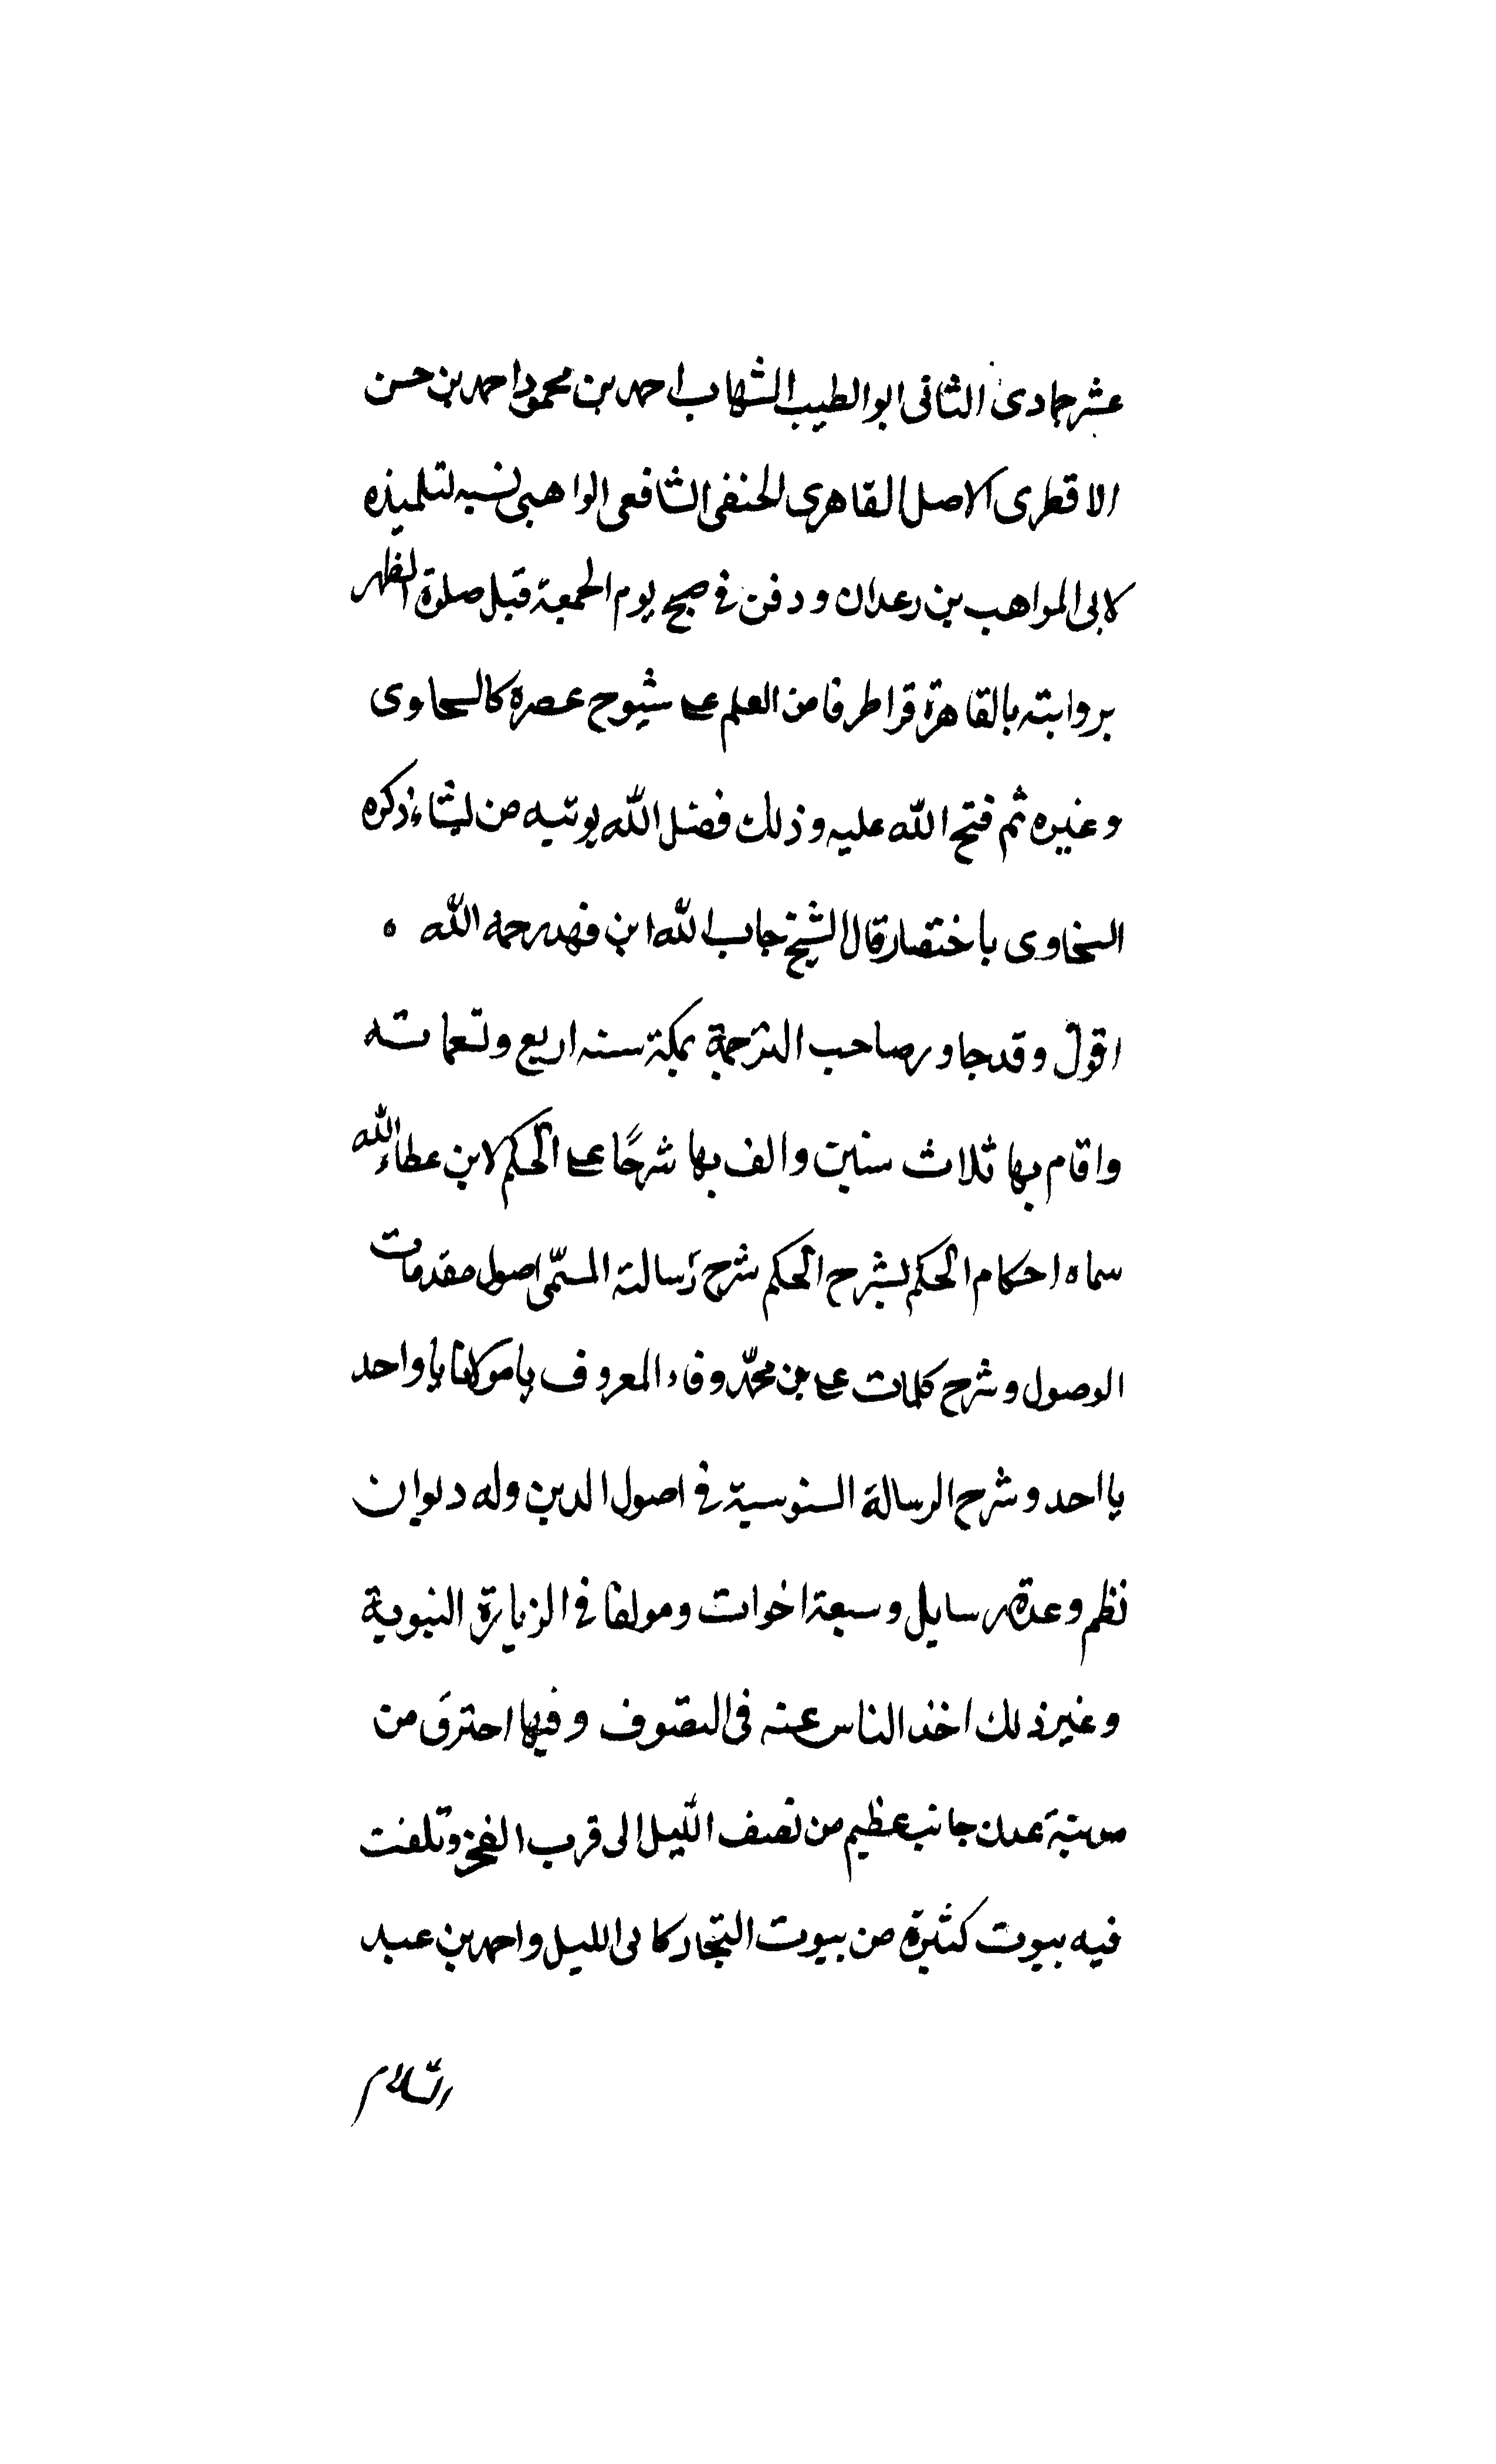 عشر جمادى الثانى ابو الطيب الشهاب احمد بن محمود احمد بن حسن
الاقطرى الاصل القاهرى الحنفى الشافعى الواهبى نسبه لتلميذه
لابى المواهب بن رعدان ودفن فى صبح يوم الجمعة قبل صلوة الظهر
بروابته بالقاهرة قرا طرفا من العلم على شيوح عصره كالسحاوى
وغيره ثم فتح الله عليه وذلك فضل الله يوتيه من يشاء ذكره
السخاوى باختصار قال الشيخ جاب الله ابن فهد رحمه الله ه
اقول وقد جاور صاحب الترجمة بمكة سنه اربع وتسعماته
واقام بها ثلاث سنين والف بها شرحًا على الحكم لابن عطاء الله
سماه احكام الحكم لشرح الحكم شرح رسالته المسمّى اصول مقدمات
الوصول وشرح كلمات على بن محمّد وفاء المعروف يا مولانا يا واحد
يا احد وشرح الرسالة السنوسية فى اصول الدين وله ديوان
نظم وعدة رسايل وسبعة اخوات ومولفا فى الزيارة النبوية
وغير ذلك اخذ الناس عنه فى التصوف وفيها احترق من
مدينة عدن جانب عظيم من نصف الليل الى قرب الفجر وتلفت
فيه بيوت كثيرة من بيوت التجار كابى الليل واحمد بن عبد
السلام